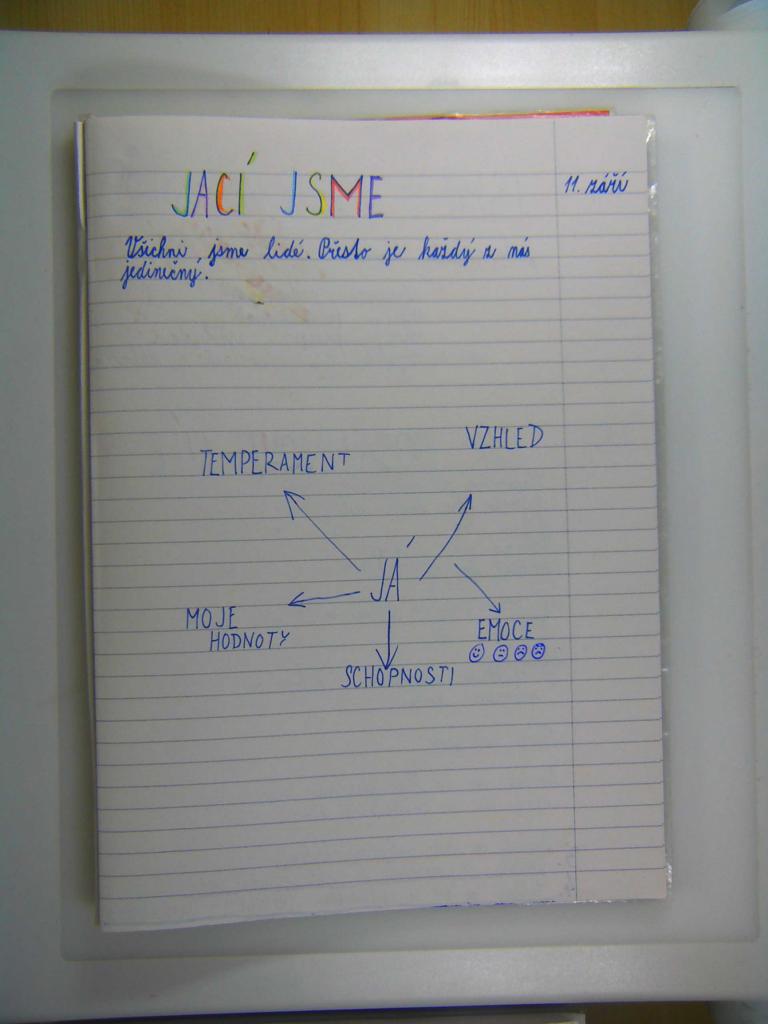 JACÍ JSME
11. září
Všichni jsme lidé. Přesto je každý z nás
jedinečný.
TEMPERAMENT
VZHLED
JÁ
MOJE
HODNOTY
EMOCE
SCHOPNOSTI